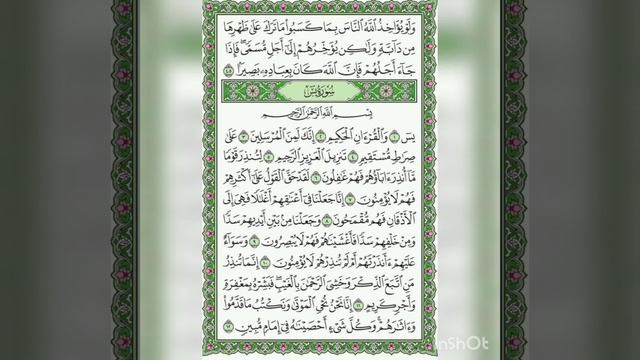 وَلَوْ يُؤَاخِذُ ٱللَّهُ ٱلنَّاسَ بِمَا كَسَبُوا۟ مَا تَرَكَ عَلَىٰ ظَهْرِهَا
مِن دَآبَّةٍ وَلَٰكِن يُؤَخِّرُهُمْ إِلَىٰٓ أَجَلٍ مُّسَمًّى فَإِذَا
جَآءَ أَجَلُهُمْ فَإِنَّ ٱللَّهَ كَانَ بِعِبَادِهِۦ بَصِيرًۢا ٤٥
سُورَةُ يسٓ
بِسْمِ ٱللَّهِ ٱلرَّحْمَٰنِ ٱلرَّحِيمِ
يسٓ ١ وَٱلْقُرْءَانِ ٱلْحَكِيمِ ٢ إِنَّكَ لَمِنَ ٱلْمُرْسَلِينَ ٣ عَلَىٰ
صِرَٰطٍ مُّسْتَقِيمٍ ٤ تَنزِيلَ ٱلْعَزِيزِ ٱلرَّحِيمِ ٥ لِتُنذِرَ قَوْمًا
مَّآ أُنذِرَ ءَابَآؤُهُمْ فَهُمْ غَٰفِلُونَ ٦ لَقَدْ حَقَّ ٱلْقَوْلُ عَلَىٰٓ أَكْثَرِهِمْ
فَهُمْ لَا يُؤْمِنُونَ ٧ إِنَّا جَعَلْنَا فِىٓ أَعْنَٰقِهِمْ أَغْلَٰلًا فَهِىَ إِلَى
ٱلْأَذْقَانِ فَهُم مُّقْمَحُونَ ٨ وَجَعَلْنَا مِنۢ بَيْنِ أَيْدِيهِمْ سَدًّا
وَمِنْ خَلْفِهِمْ سَدًّا فَأَغْشَيْنَٰهُمْ فَهُمْ لَا يُبْصِرُونَ ٩ وَسَوَآءٌ
عَلَيْهِمْ ءَأَنذَرْتَهُمْ أَمْ لَمْ تُنذِرْهُمْ لَا يُؤْمِنُونَ ١٠ إِنَّمَا تُنذِرُ
مَنِ ٱتَّبَعَ ٱلذِّكْرَ وَخَشِىَ ٱلرَّحْمَٰنَ بِٱلْغَيْبِ فَبَشِّرْهُ بِمَغْفِرَةٍ
وَأَجْرٍ كَرِيمٍ ١١ إِنَّا نَحْنُ نُحْىِ ٱلْمَوْتَىٰ وَنَكْتُبُ مَا قَدَّمُوا۟
وَءَاثَٰرَهُمْ وَكُلَّ شَىْءٍ أَحْصَيْنَٰهُ فِىٓ إِمَامٍ مُّبِينٍ ١٢
InShOt